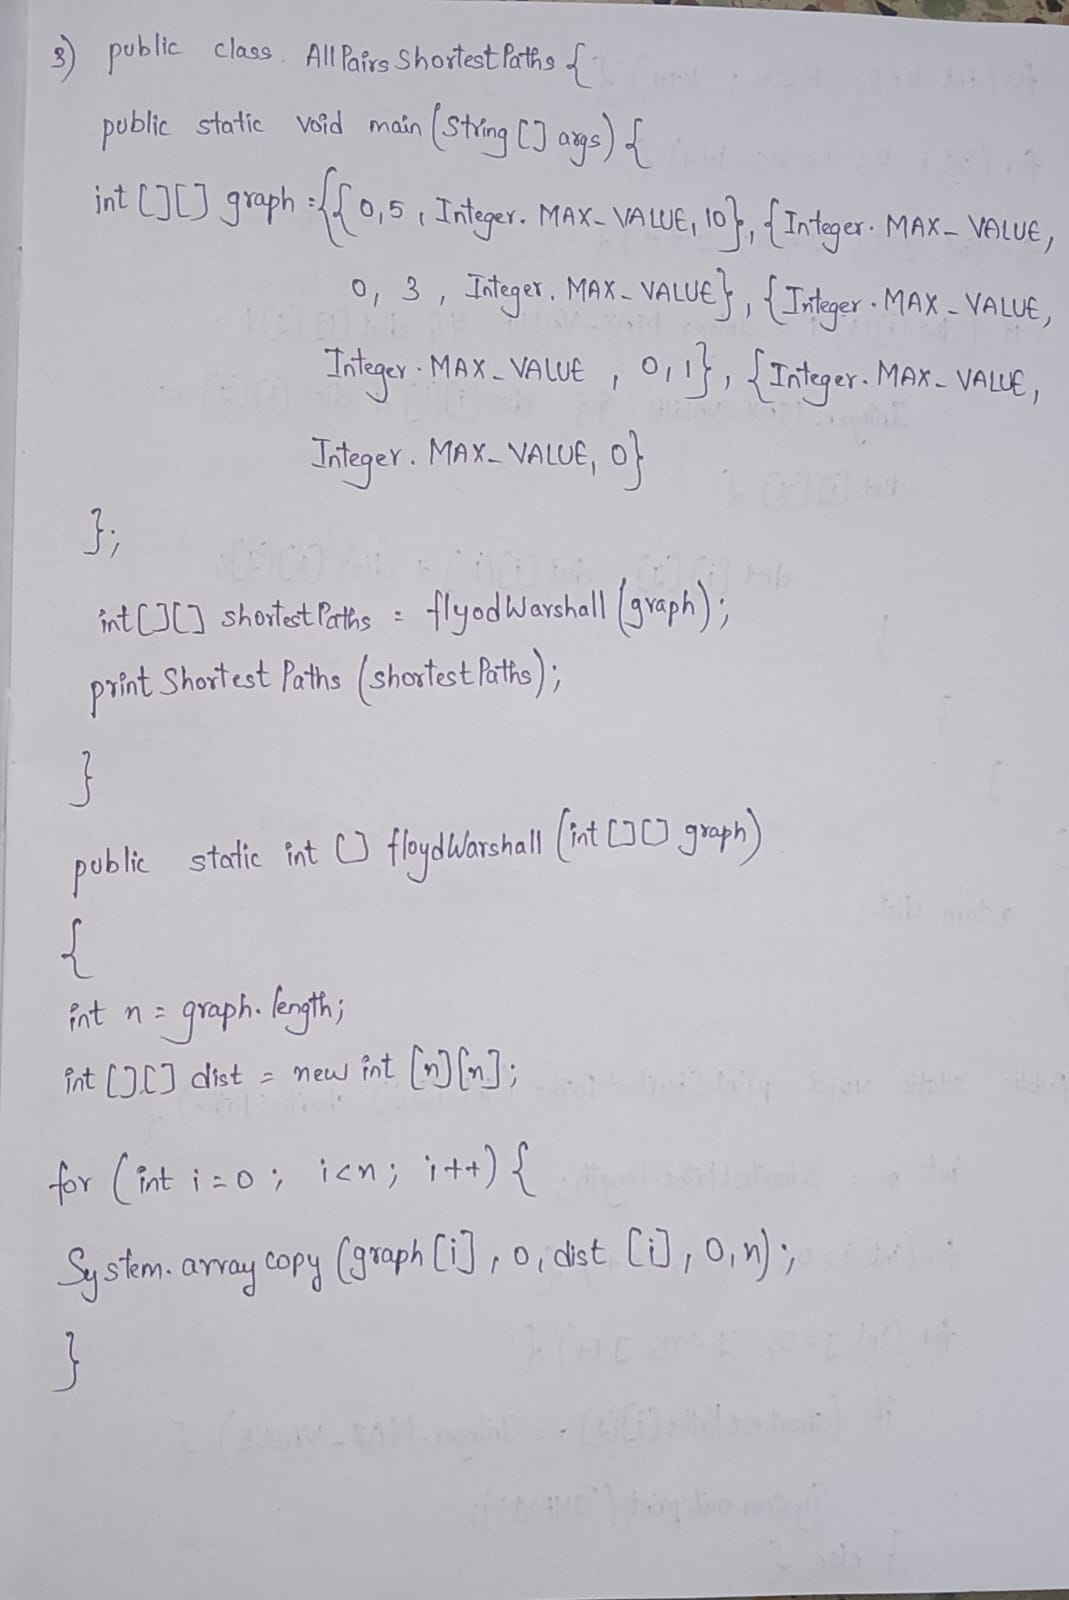 3) public class. AllPairsShortestPaths {
public static void main (String [] args) {
int [][] graph = {{0,5, Integer. MAX_VALUE, 10}, {Integer. MAX_VALUE,
0, 3, Integer. MAX_VALUE}, {Integer. MAX_VALUE,
Integer. MAX_VALUE, 0,1}, {Integer. MAX_VALUE,
Integer. MAX_VALUE, 0}
};
int [][] shortestPaths = flyodWarshall (graph);
print Shortest Paths (shortestPaths);
}
public static int [] floydWarshall (int [][] graph)
{
int n = graph. length;
int [][] dist = new int [n][n];
for (int i=0; i<n; i++) {
System. arraycopy (graph [i], 0, dist [i], 0, n);
}